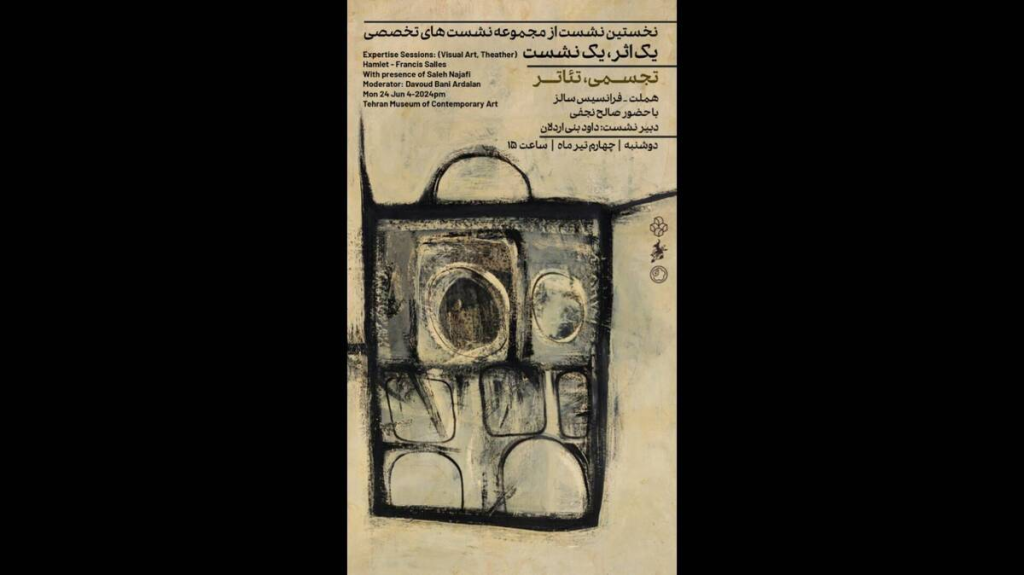 نخستین نشست از مجموعه نشست های تخصصی
یک اثر، یک نشست
تجسمی، تئاتر
هملت - فرانسیس سالز
با حضور صالح نجفی
دبیر نشست: داود بنی اردلان
دوشنبه | چهارم تیر ماه | ساعت ۱۵
Expertise Sessions: (Visual Art, Theather)
Hamlet - Francis Salles
With presence of Saleh Najafi
Moderator: Davoud Bani Ardalan
Mon 24 Jun 4-2024pm
Tehran Museum of Contemporary Art